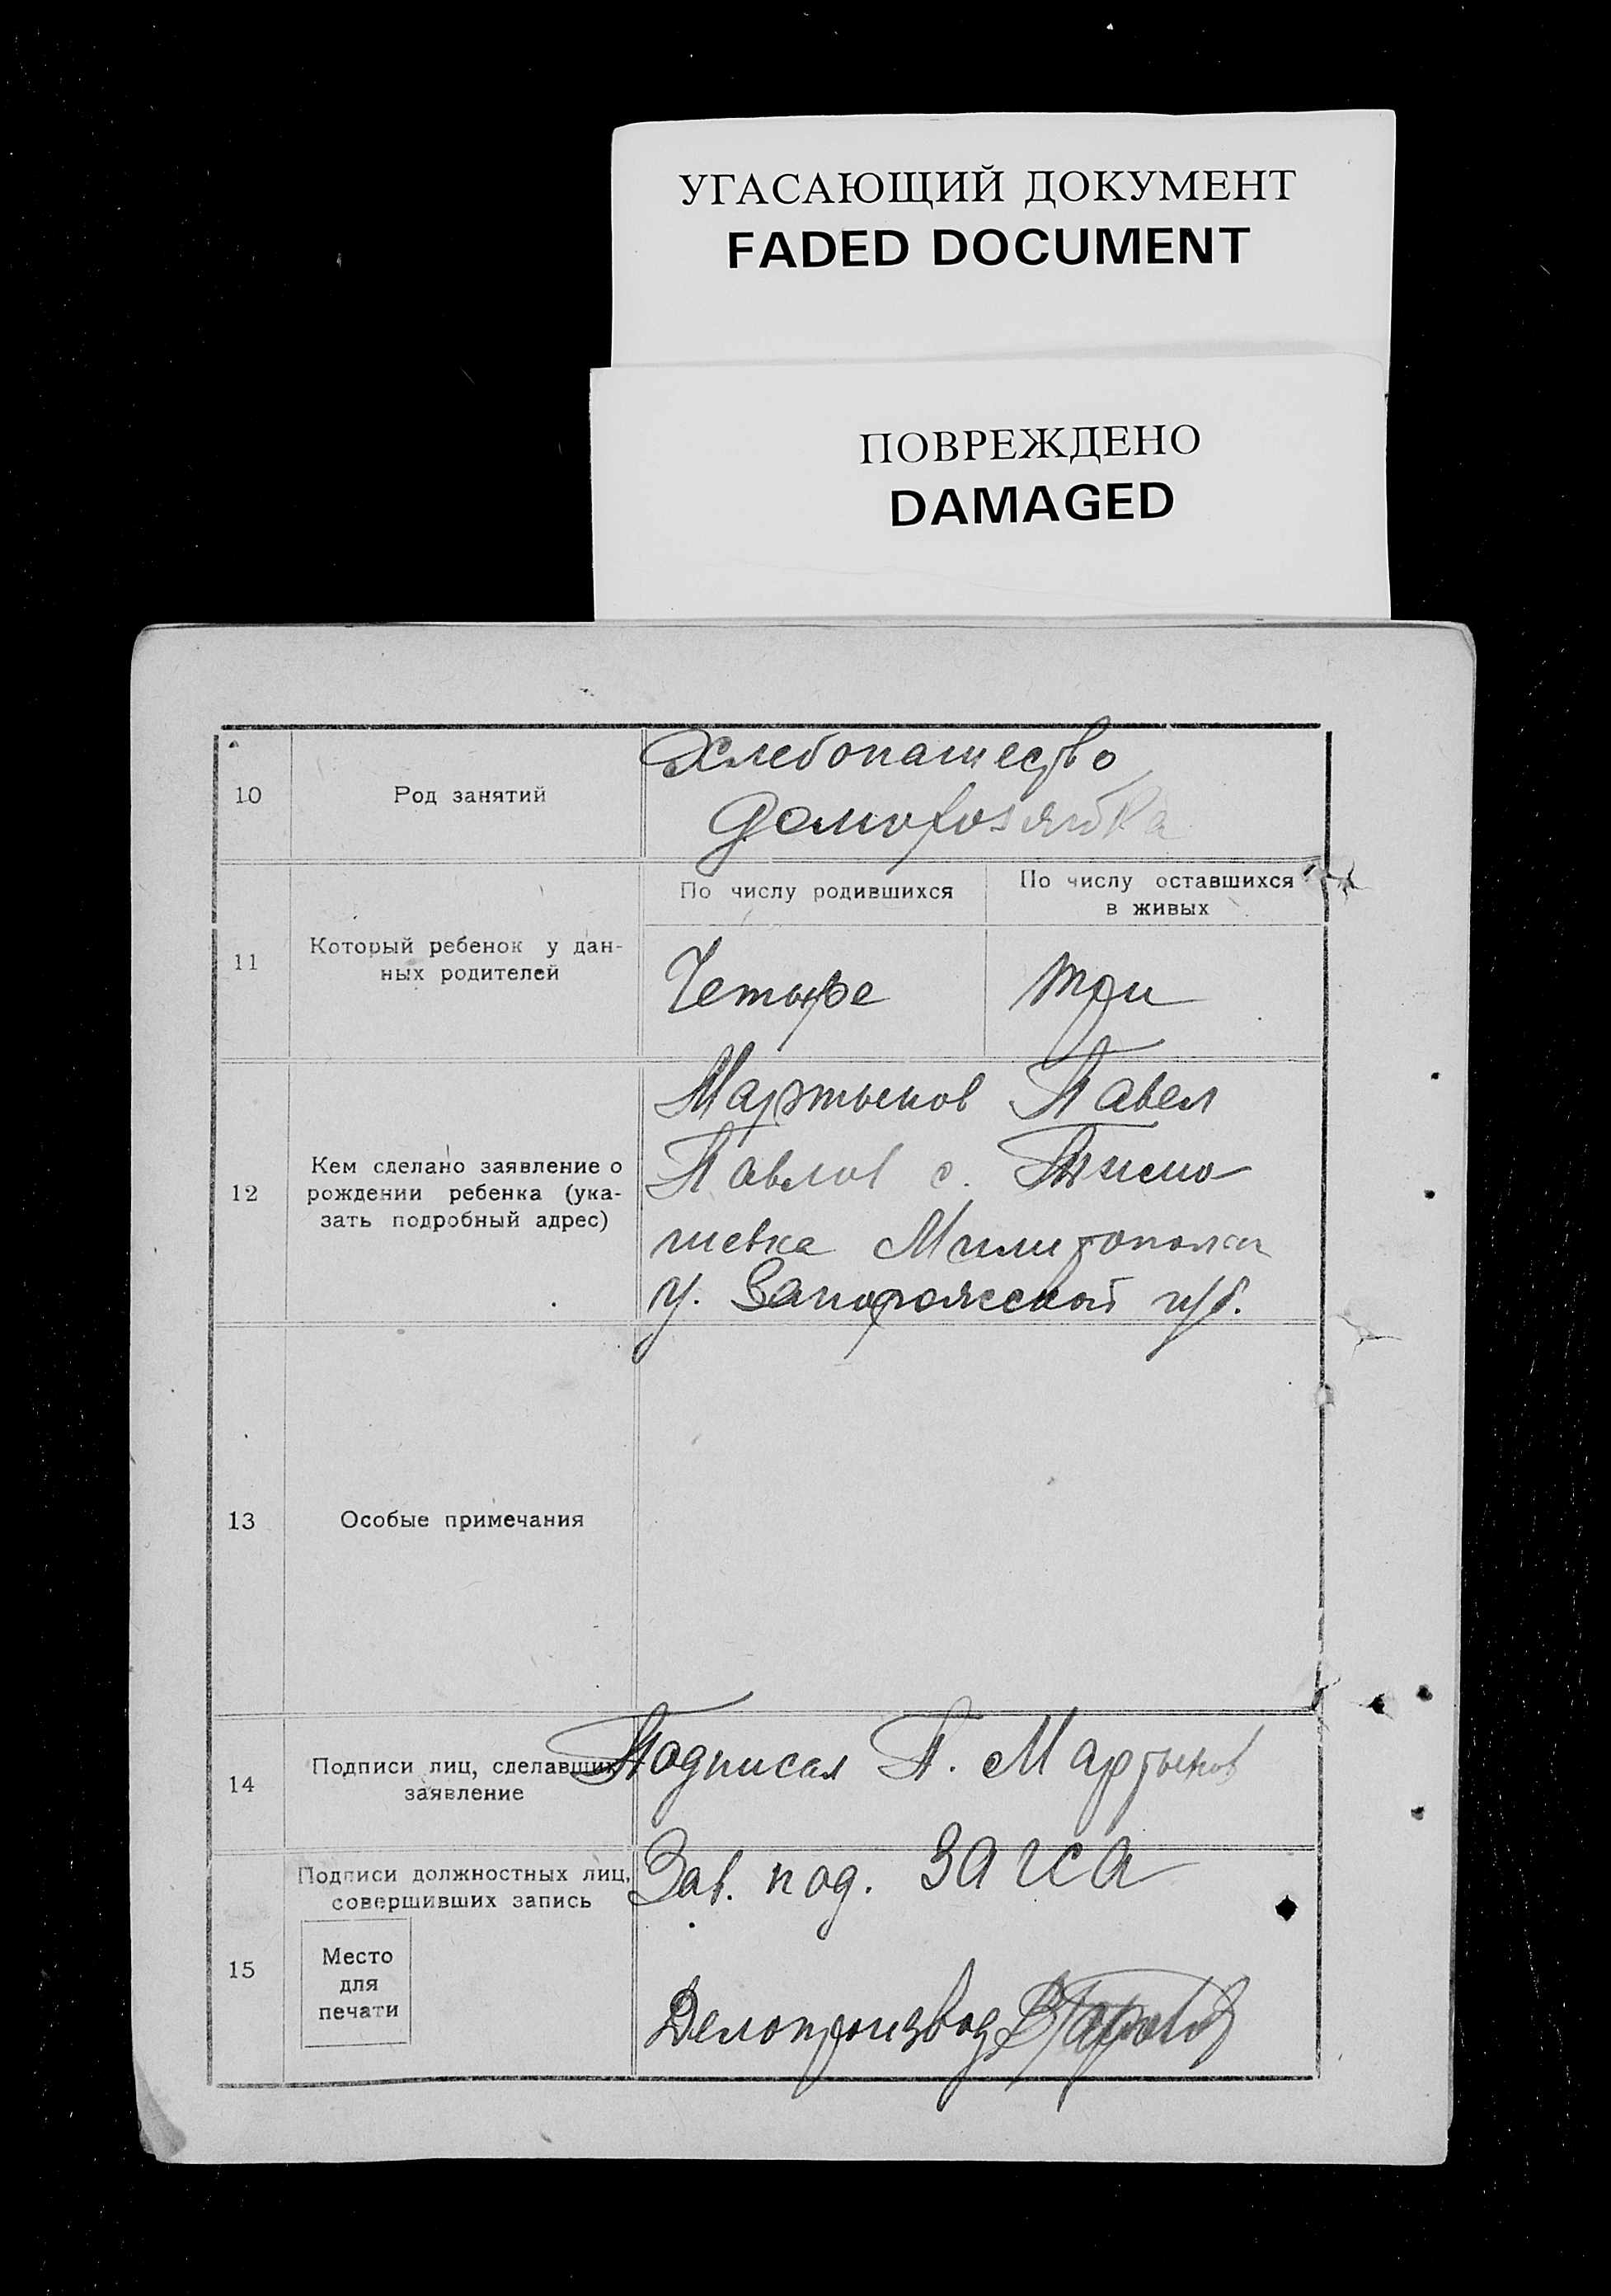 УГАСАЮЩИЙ ДОКУМЕНТ
FADED DOCUMENT
ПОВРЕЖДЕНО
DAMAGED
10
Род занятий
Хлебопашество
домохозяйка
11
Который ребенок у дан-
ных родителей
По числу родившихся
Четыре
По числу оставшихся
в живых
три
12
Кем сделано заявление о
рождении ребенка (ука-
зать подробный адрес)
Мартынов Павел
Павлов с. Тимо
шевка Милитополск
у. Запорожской губ.
13
Особые примечания
14
Подписи лиц, сделавших
заявление
Подписал П. Мартынов
15
Подписи должностных лиц,
совершивших запись
Место
для
печати
Зав. под. ЗАГСА
Делопроизвод